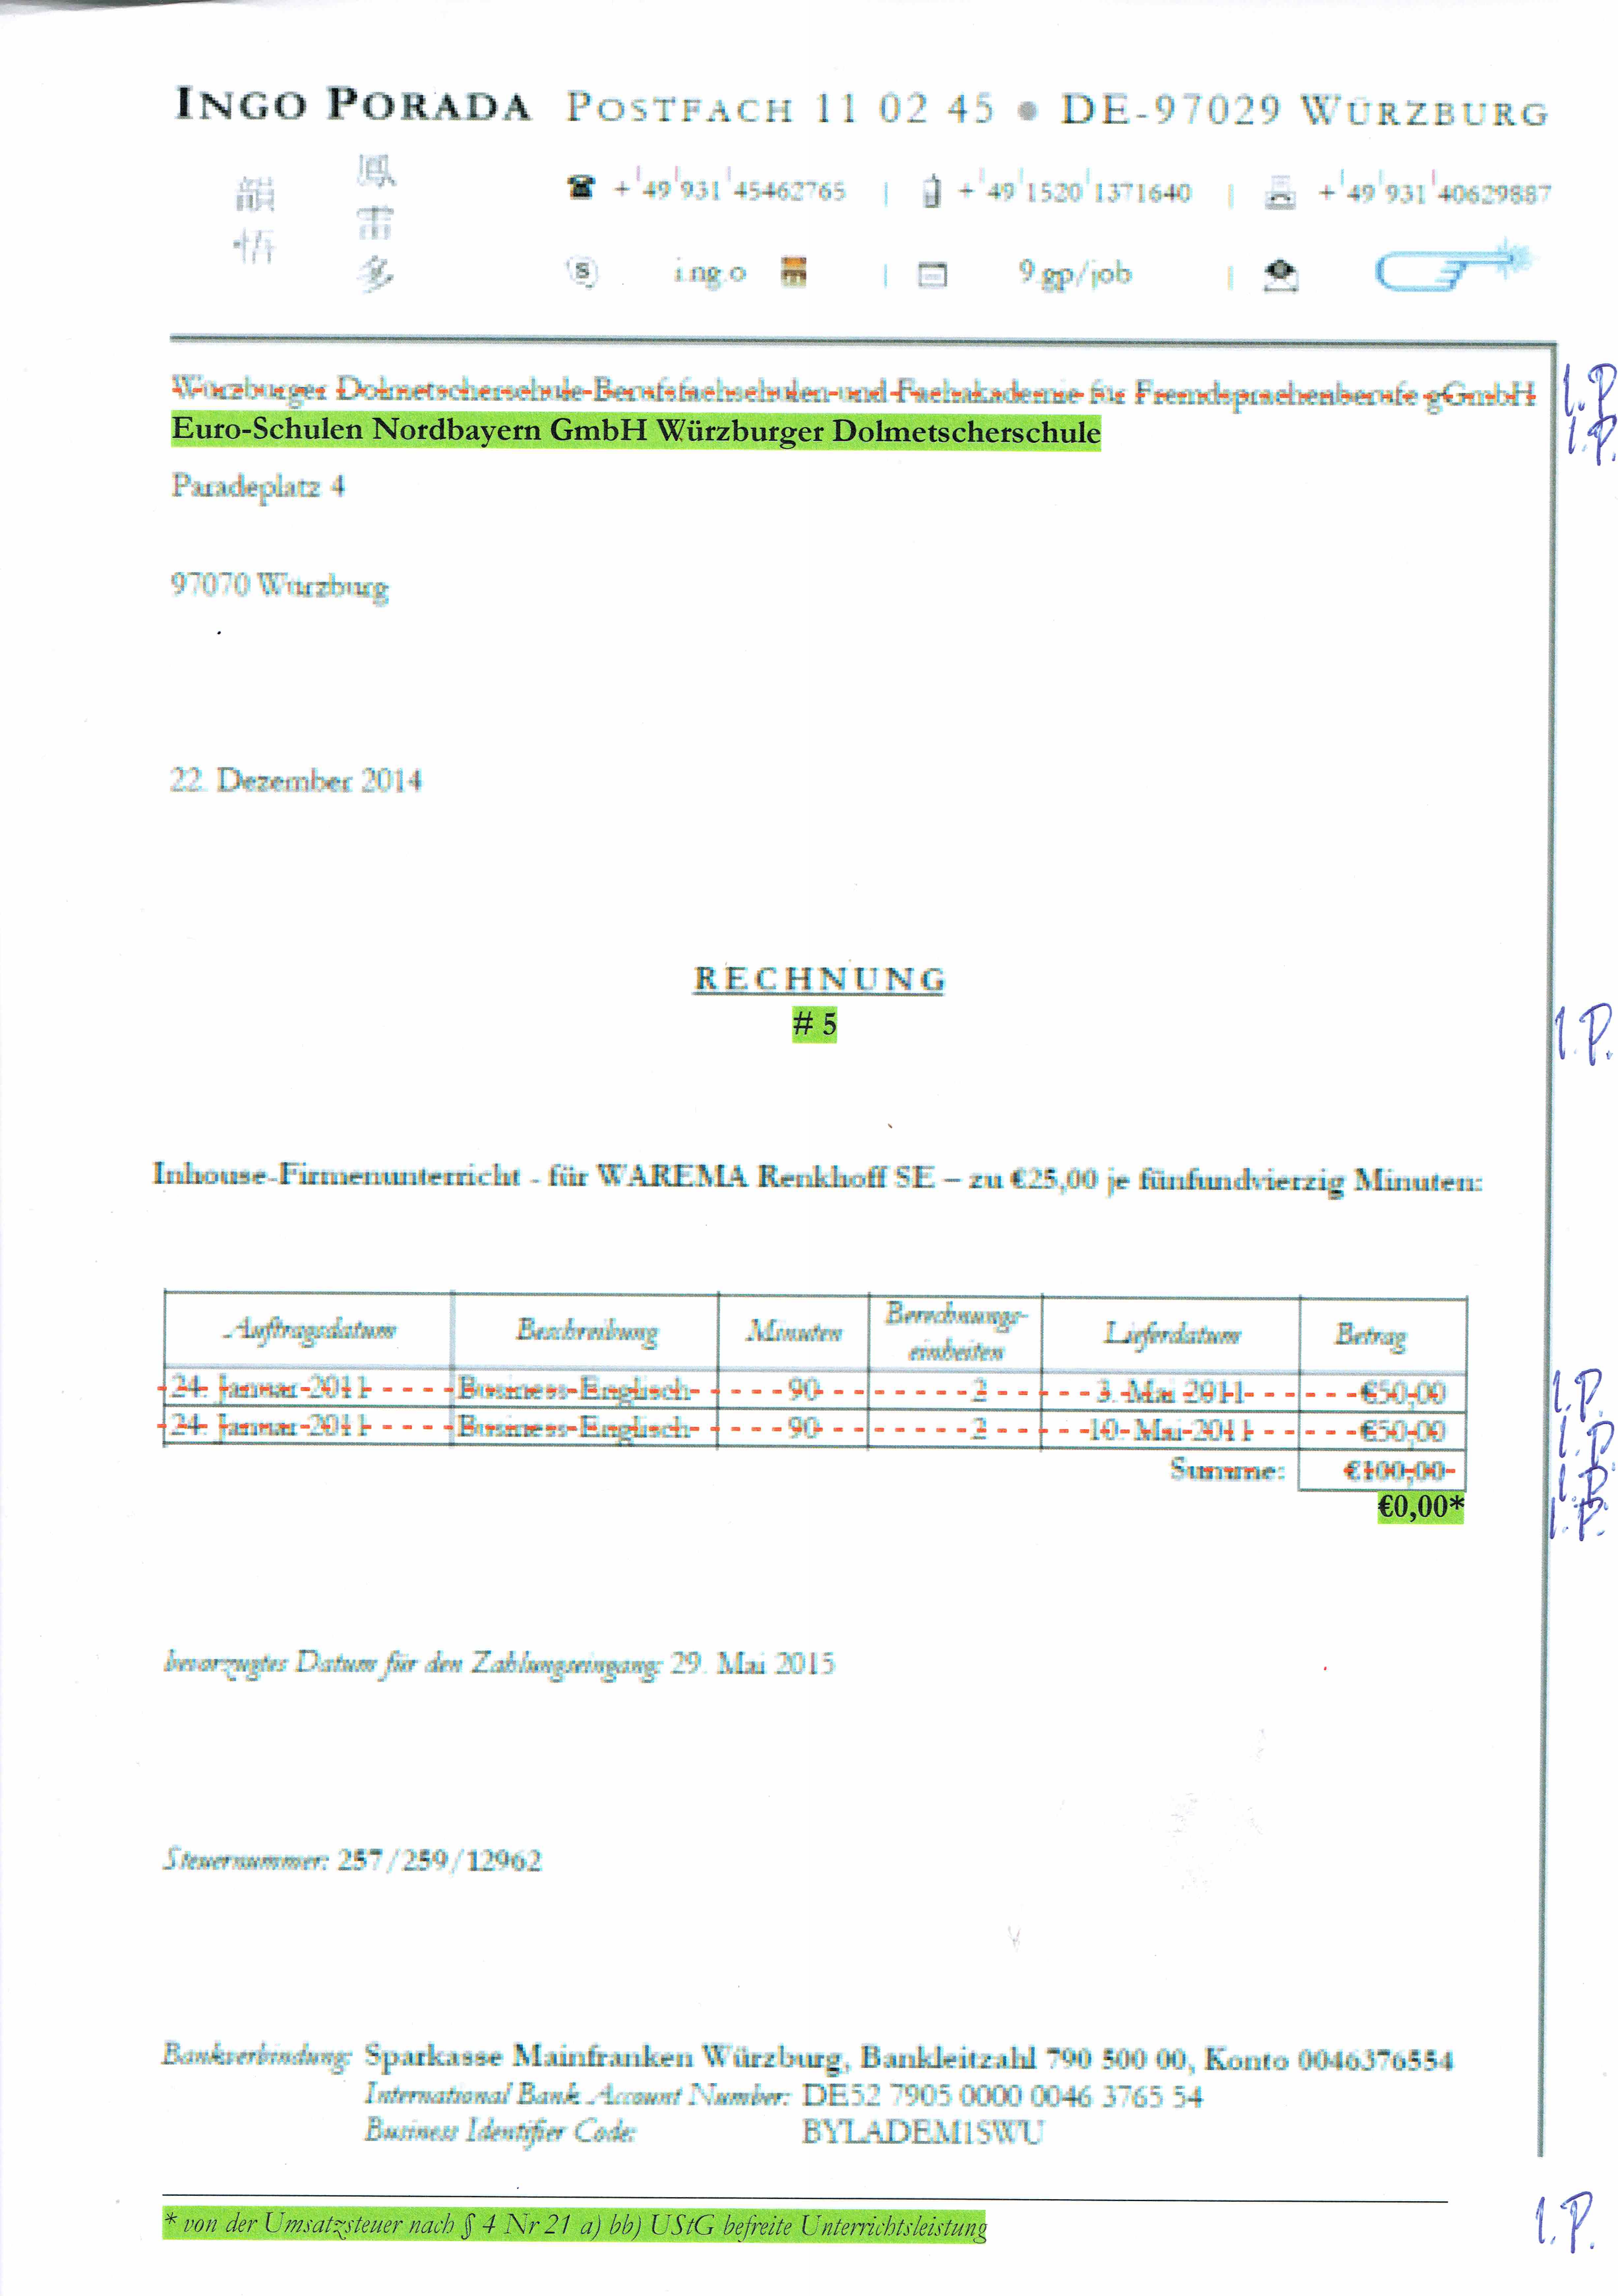 INGO PORADA POSTFACH 11 02 45 • DE-97029 WÜRZBURG
+49 931 45462765 | +49 1520 1371640 | +49 931 40629887
i.ng.o | 9.gp/job |
Würzburger Dolmetscherschule Berufsfachschulen und Fachakademie für Fremdsprachenberufe gGmbH I.P.
Euro-Schulen Nordbayern GmbH Würzburger Dolmetscherschule I.P.
Paradeplatz 4
97070 Würzburg
22. Dezember 2014
RECHNUNG
# 5 I.P.
Inhouse-Firmenunterricht - für WAREMA Renkhoff SE – zu €25,00 je fünfundvierzig Minuten:
Auftragsdatum Beschreibung Minuten Berechnungs-einheiten Lieferdatum Betrag
24. Januar 2011 Business Englisch 90 2 3. Mai 2011 €50,00 I.P.
24. Januar 2011 Business Englisch 90 2 10. Mai 2011 €50,00 I.P.
Summe: €100,00 I.P.
€0,00* I.P.
bevorzugtes Datum für den Zahlungseingang: 29. Mai 2015
Steuernummer: 257/259/12962
Bankverbindung: Sparkasse Mainfranken Würzburg, Bankleitzahl 790 500 00, Konto 0046376554
International Bank Account Number: DE52 7905 0000 0046 3765 54
Business Identifier Code: BYLADEM1SWU
* von der Umsatzsteuer nach § 4 Nr 21 a) bb) UStG befreite Unterrichtsleistung I.P.